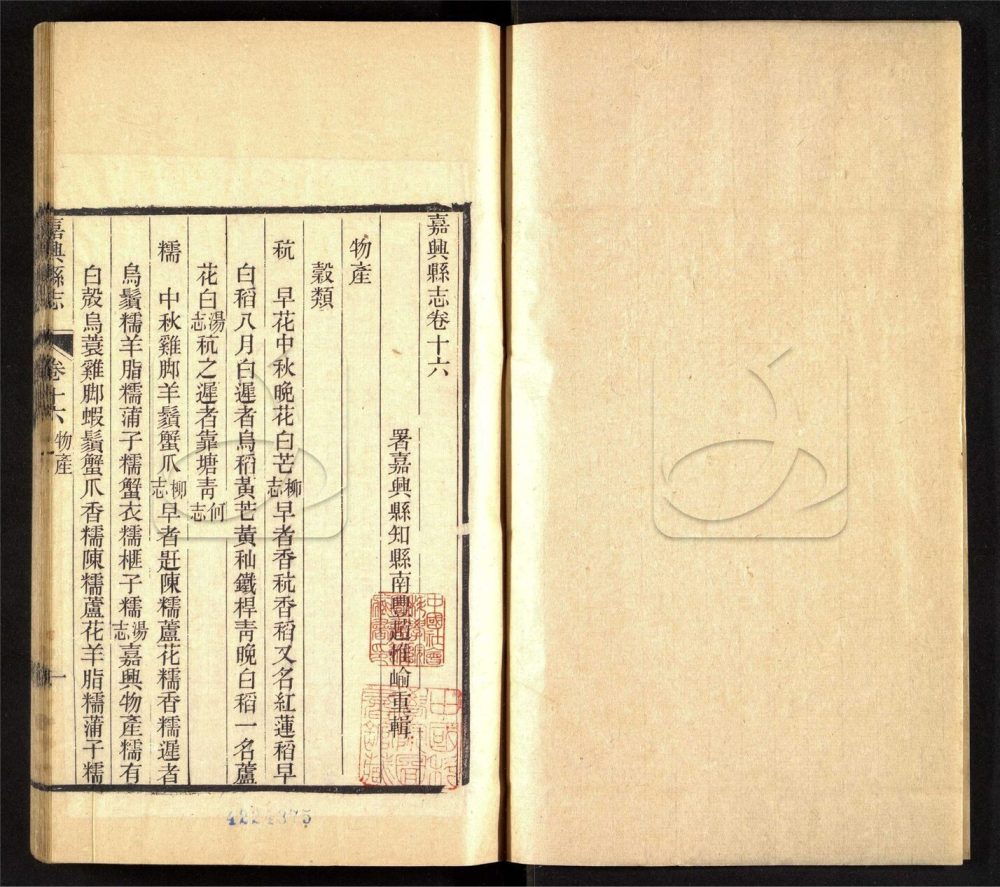 嘉興縣志卷十六
署嘉興縣知縣南豐趙惟崳重輯
物產
穀類
秔　早花中秋晚花白芒柳志早者香秔香稻又名紅蓮稻早
白稻八月白遲者烏稻黃芒黃秈鐵桿青晚白稻一名蘆
花白湯志秔之遲者靠塘青何志
糯　中秋雞脚羊鬚蟹爪柳志早者赶陳糯蘆花糯香糯遲者
烏鬚糯羊脂糯蒲子糯蟹衣糯榧子糯湯志嘉興物產糯有
白殼烏蓑雞脚蝦鬚蟹爪香糯陳糯蘆花羊脂糯蒲子糯
嘉興縣志
卷十六 物產
一
4224375